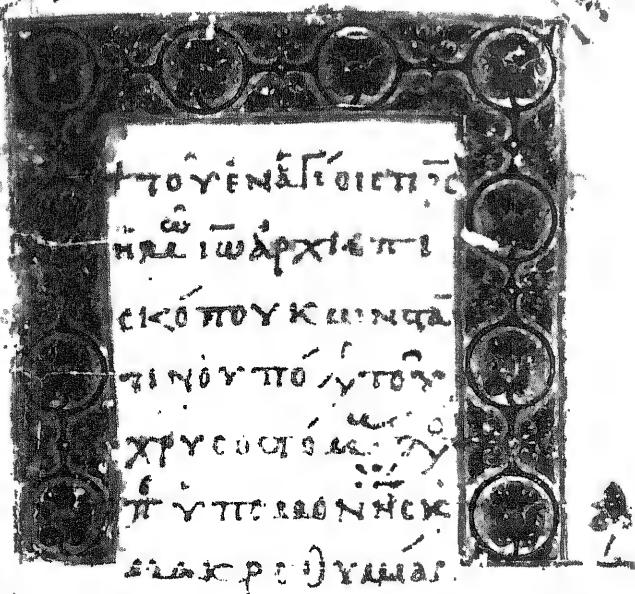 + τοῦ ἐν ἁγίοις π̅ρ̅ς
ἡμῶ ἰω̅ ἀρχιεπι
σκόπου κωνστα̅
τινουπό(λ) τοῦ
χρυσοστόμου
π ὑπομονῆς κ
μακροθυμίας